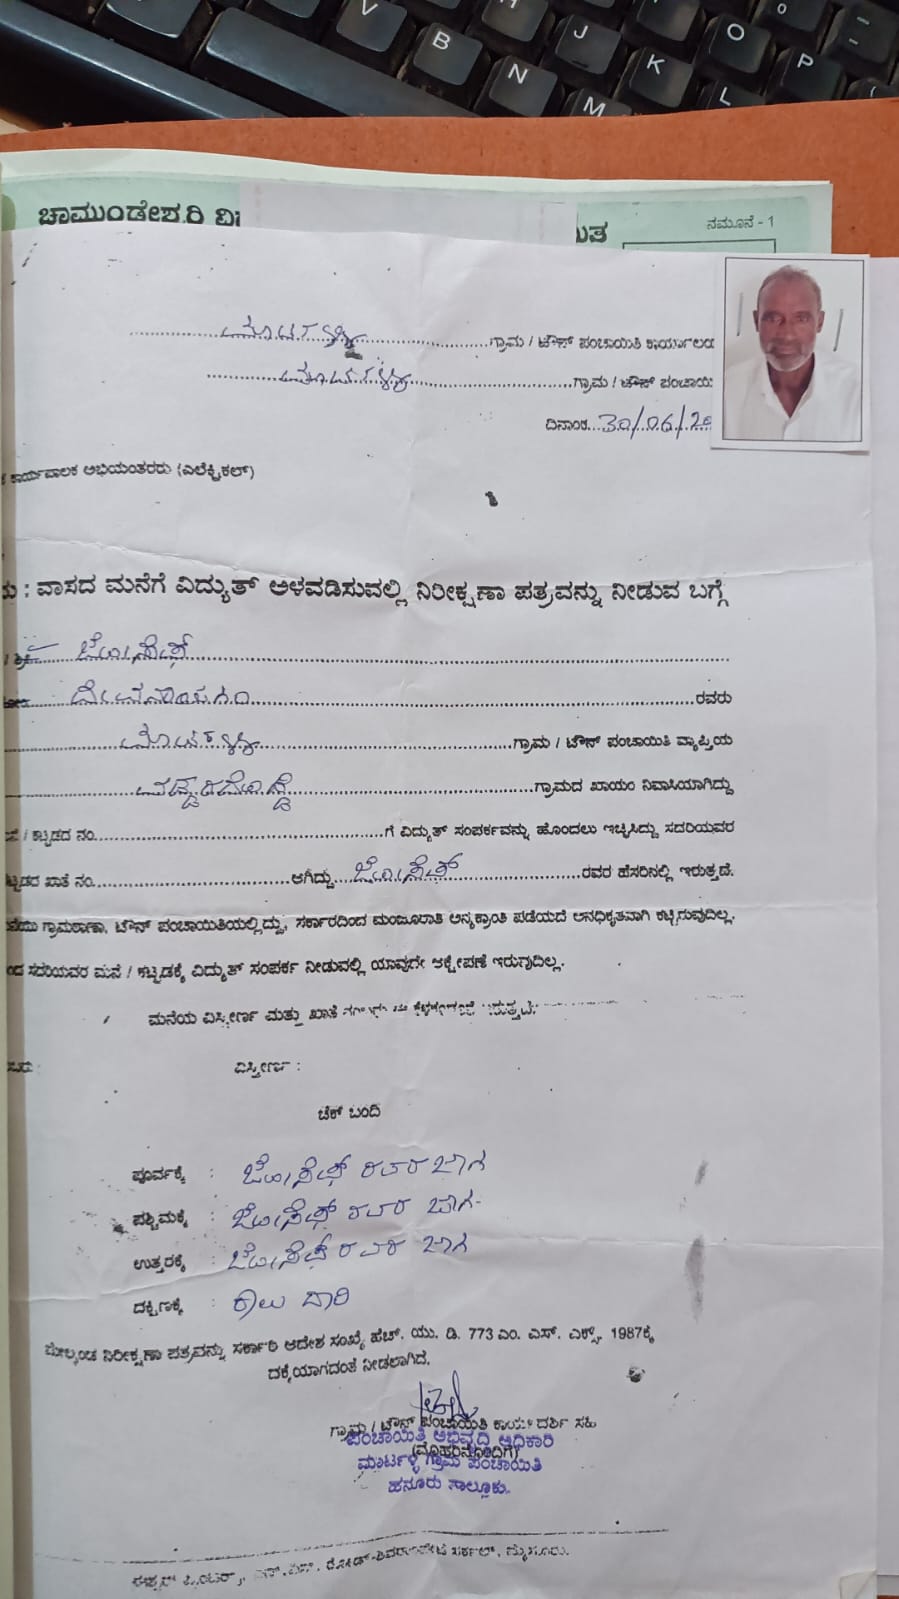 V
B
N
M
H
J
K
L
O
P
ಚಾಮುಂಡೇಶ್ವರಿ ವಿ
ನಮೂನೆ - 1
ಗ್ರಾಮ / ಟೌನ್ ಪಂಚಾಯಿತಿ ಕಾರ್ಯಾಲಯ
ಗ್ರಾಮ / ಟೌನ್ ಪಂಚಾಯಿ
ದಿನಾಂಕ...30/06/20
ಕಾರ್ಯಪಾಲಕ ಅಭಿಯಂತರರು (ಎಲೆಕ್ಟ್ರಿಕಲ್)
: ವಾಸದ ಮನೆಗೆ ವಿದ್ಯುತ್ ಅಳವಡಿಸುವಲ್ಲಿ ನಿರೀಕ್ಷಣಾ ಪತ್ರವನ್ನು ನೀಡುವ ಬಗ್ಗೆ
ಜೋಸೇಫ್
ದೇವನಾಯಗಂ ರವರು
ಗ್ರಾಮ / ಟೌನ್ ಪಂಚಾಯಿತಿ ವ್ಯಾಪ್ತಿಯ
ಗ್ರಾಮದ ಖಾಯಂ ನಿವಾಸಿಯಾಗಿದ್ದು
/ ಕಟ್ಟಡದ ನಂ. ಗೆ ವಿದ್ಯುತ್ ಸಂಪರ್ಕವನ್ನು ಹೊಂದಲು ಇಚ್ಛಿಸಿದ್ದು ಸದರಿಯವರ
ಖಾತೆ ನಂ. ಆಗಿದ್ದು ಜೋಸೆಫ್ ರವರ ಹೆಸರಿನಲ್ಲಿ ಇರುತ್ತದೆ.
ಗ್ರಾಮಠಾಣಾ, ಟೌನ್ ಪಂಚಾಯಿತಿಯಲ್ಲಿದ್ದು, ಸರ್ಕಾರದಿಂದ ಮಂಜೂರಾತಿ ಅನ್ಯಕ್ರಾಂತಿ ಪಡೆಯದೆ ಅನಧಿಕೃತವಾಗಿ ಕಟ್ಟಿರುವುದಿಲ್ಲ.
ಸದರಿಯವರ ಮನೆ / ಕಟ್ಟಡಕ್ಕೆ ವಿದ್ಯುತ್ ಸಂಪರ್ಕ ನೀಡುವಲ್ಲಿ ಯಾವುದೇ ಆಕ್ಷೇಪಣೆ ಇರುವುದಿಲ್ಲ.
ಮನೆಯ ವಿಸ್ತೀರ್ಣ ಮತ್ತು ಖಾತೆ
ವಿಸ್ತೀರ್ಣ :
ಚೆಕ್ ಬಂದಿ
ಪೂರ್ವಕ್ಕೆ : ಜೋಸೆಫ್ ರವರ ಜಾಗ
ಪಶ್ಚಿಮಕ್ಕೆ : ಜೋಸೆಫ್ ರವರ ಜಾಗ
ಉತ್ತರಕ್ಕೆ : ಜೋಸೆಫ್ ರವರ ಜಾಗ
ದಕ್ಷಿಣಕ್ಕೆ : ಕಾಲು ದಾರಿ
ಮೇಲ್ಕಂಡ ನಿರೀಕ್ಷಣಾ ಪತ್ರವನ್ನು ಸರ್ಕಾರಿ ಆದೇಶ ಸಂಖ್ಯೆ ಹೆಚ್. ಯು. ಡಿ. 773 ಎಂ. ಎಸ್. ಎಕ್ಸ್. 1987ಕ್ಕೆ
ದಕ್ಕೆಯಾಗದಂತೆ ನೀಡಲಾಗಿದೆ.
ಗ್ರಾಮ / ಟೌನ್ ಪಂಚಾಯಿತಿ ಕಾರ್ಯದರ್ಶಿ ಸಹಿ
ಪಂಚಾಯಿತಿ ಅಭಿವೃದ್ಧಿ ಅಧಿಕಾರಿ
(ಮೊಹರಿನೊಂದಿಗೆ)
ಮಾರ್ಟಳ್ಳಿ ಗ್ರಾಮ ಪಂಚಾಯಿತಿ
ಹನೂರು ತಾಲ್ಲೂಕು.
ಸರ್ಕಲ್, ಮೈಸೂರು.